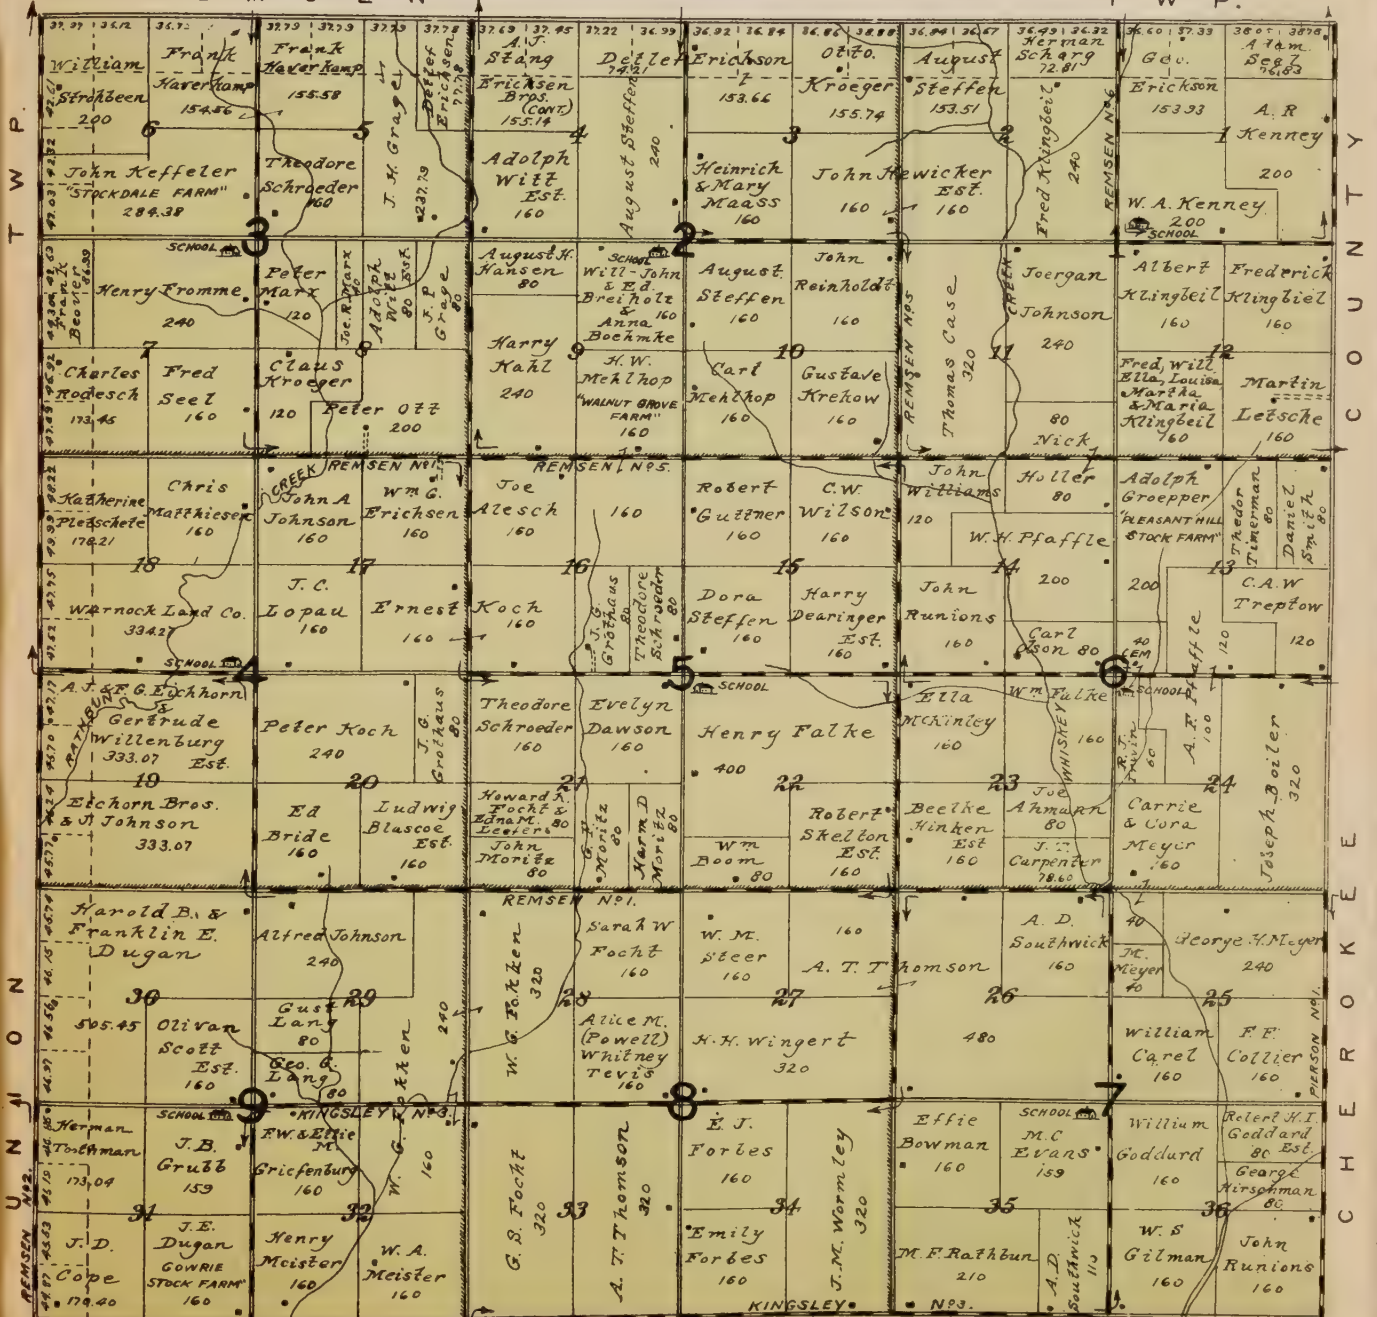 TWP.
37.37 36.12 36.73 37.79 37.79 37.79 37.78 37.69 37.45 37.22 36.99 36.92 36.84 36.86 38.88 36.84 36.67 36.49 36.32 36.60 37.33
William
Strohbeen
200
Frank
Haverkamp
154.56
6
John Keffeler
"STOCKDALE FARM"
284.38
Frank
Haverkamp
155.58
5
J. H. Grage
237.79
Detlef
Ericksen
77.78
Theodore
Schroeder
160
A. J.
Stang
Ericksen
Bros.
(CONT.)
155.14
4
Detlef Erickson
74.21
August Steffen
240
Adolph
Witt
Est.
160
153.66
3
Otto
Kroeger
155.74
Heinrich
& Mary
Maass
160
John Hewicker
Est.
160
160
August
Steffen
153.51
2
Herman
Scharg
72.81
Fred Klingbeil
240
REMSEN Nº6
Geo.
Erickson
153.93
1
Adam
Segl
76.83
A. R
Kenney
200
W. A. Kenney
200
SCHOOL
SCHOOL
3
2
1
Frank
Beover
86.39
Henry Fromme
240
7
Charles
Rodesch
173.45
Fred
Seel
160
Peter
Marx
120
Joe. R. Marx
40
Adolph
Witt Est.
80
J. P
Grage
80
8
Claus
Kroeger
120
Peter Ott
200
August H.
Hansen
80
SCHOOL
Will-John
& Ed.
Breiholz
&
Anna
Boehmke
160
Harry
Kahl
240
9
H. W.
Mehlhop
"WALNUT GROVE
FARM"
160
August
Steffen
160
John
Reinholdt
160
10
Carl
Mehlhop
160
Gustave
Krekow
160
REMSEN Nº5
Thomas Case
320
CREEK
Joergan
Johnson
240
11
80
Nick
Holler
80
Albert
Klingbeil
160
Frederick
Klingbiel
160
12
Fred, Will
Ella, Louisa
Martha
& Maria
Klingbeil
160
Martin
Letsche
160
REMSEN Nº1
REMSEN Nº5.
Katherine
Pletschete
178.21
Chris
Matthiesen
160
18
Warnock Land Co.
334.27
SCHOOL
CREEK
John A
Johnson
160
Wm G.
Erichsen
160
17
J. C.
Lopau
160
Ernest Koch
160
160
Joe
Alesch
160
16
J. G.
Grothaus
80
Theodore
Schroeder
80
Robert
Guttner
160
C. W.
Wilson
160
15
Dora
Steffen
160
Harry
Dearinger
Est.
160
John
Williams
120
W. H. Pfaffle
200
14
John
Runions
160
Carl
Olson 80
Adolph
Groepper
"PLEASANT HILL
STOCK FARM"
200
Thedor
Timerman
80
Daniel
Smith
80
13
C. A. W
Treptow
120
40
CEM
A. F. Pfaffle
120
100
4
5
6
SCHOOL
SCHOOL
A. J. & F. G. Eichhorn
&
Gertrude
Willenburg
333.07 Est.
RATHBUN
19
Eichorn Bros.
& J. Johnson
333.07
Peter Koch
240
J. G.
Grothaus
80
20
Ed
Bride
160
Ludwig
Bluscoe
Est.
160
Theodore
Schroeder
160
Evelyn
Dawson
160
21
Howard K.
Focht &
Edna M.
Leefers 80
John
Moritz
80
G. F.
Moritz
80
Harm D
Moritz
80
Henry Falke
400
22
Wm
Boom
80
Robert
Skelton
Est.
160
Ella
McKinley
160
Wm Falke
160
WHISKEY
23
Beelke
Hinken
Est
160
Joe
Ahmann
80
J. T.
Carpenter
78.60
R. J.
Irwin
60
24
Carrie
& Cora
Meyer
160
Joseph Boiler
320
REMSEN Nº1.
Harold B. &
Franklin E.
Dugan
30
505.45
Olivan
Scott
Est.
160
SCHOOL
Alfred Johnson
240
29
Gust
Lang
80
Geo. G.
Lang
80
W. G. Fokken
240
160
W. G. Fokken
320
Sarah W
Focht
160
28
Alice M.
(Powell)
Whitney
Tevis
160
W. M.
Steer
160
160
A. T. Thomson
27
26
480
H. H. Wingert
320
A. D.
Southwick
160
40
M.
Meyer
40
George H. Meyer
240
25
William
Carel
160
F. F.
Collier
160
PIERSON Nº1.
9
8
7
KINGSLEY Nº3.
SCHOOL
Herman
Tothman
173.04
J. B.
Grubb
159
31
J. D.
Cope
170.40
J. E.
Dugan
GOWRIE
STOCK FARM"
160
F. W. & Effie
M.
Griefenburg
160
32
Henry
Meister
160
W. A.
Meister
160
G. S. Focht
320
33
A. T. Thomson
320
E. J.
Forbes
160
34
Emily
Forbes
160
J. M. Wormley
320
Effie
Bowman
160
M. C
Evans
159
35
M. F. Rathbun
210
A. D.
Southwick
110
William
Goddard
160
Robert H. I.
Goddard
80 Est.
George
Hirschman
80
36
W. S
Gilman
160
John
Runions
160
KINGSLEY Nº3.
REMSEN Nº2.
UNION TWP.
CHEROKEE COUNTY